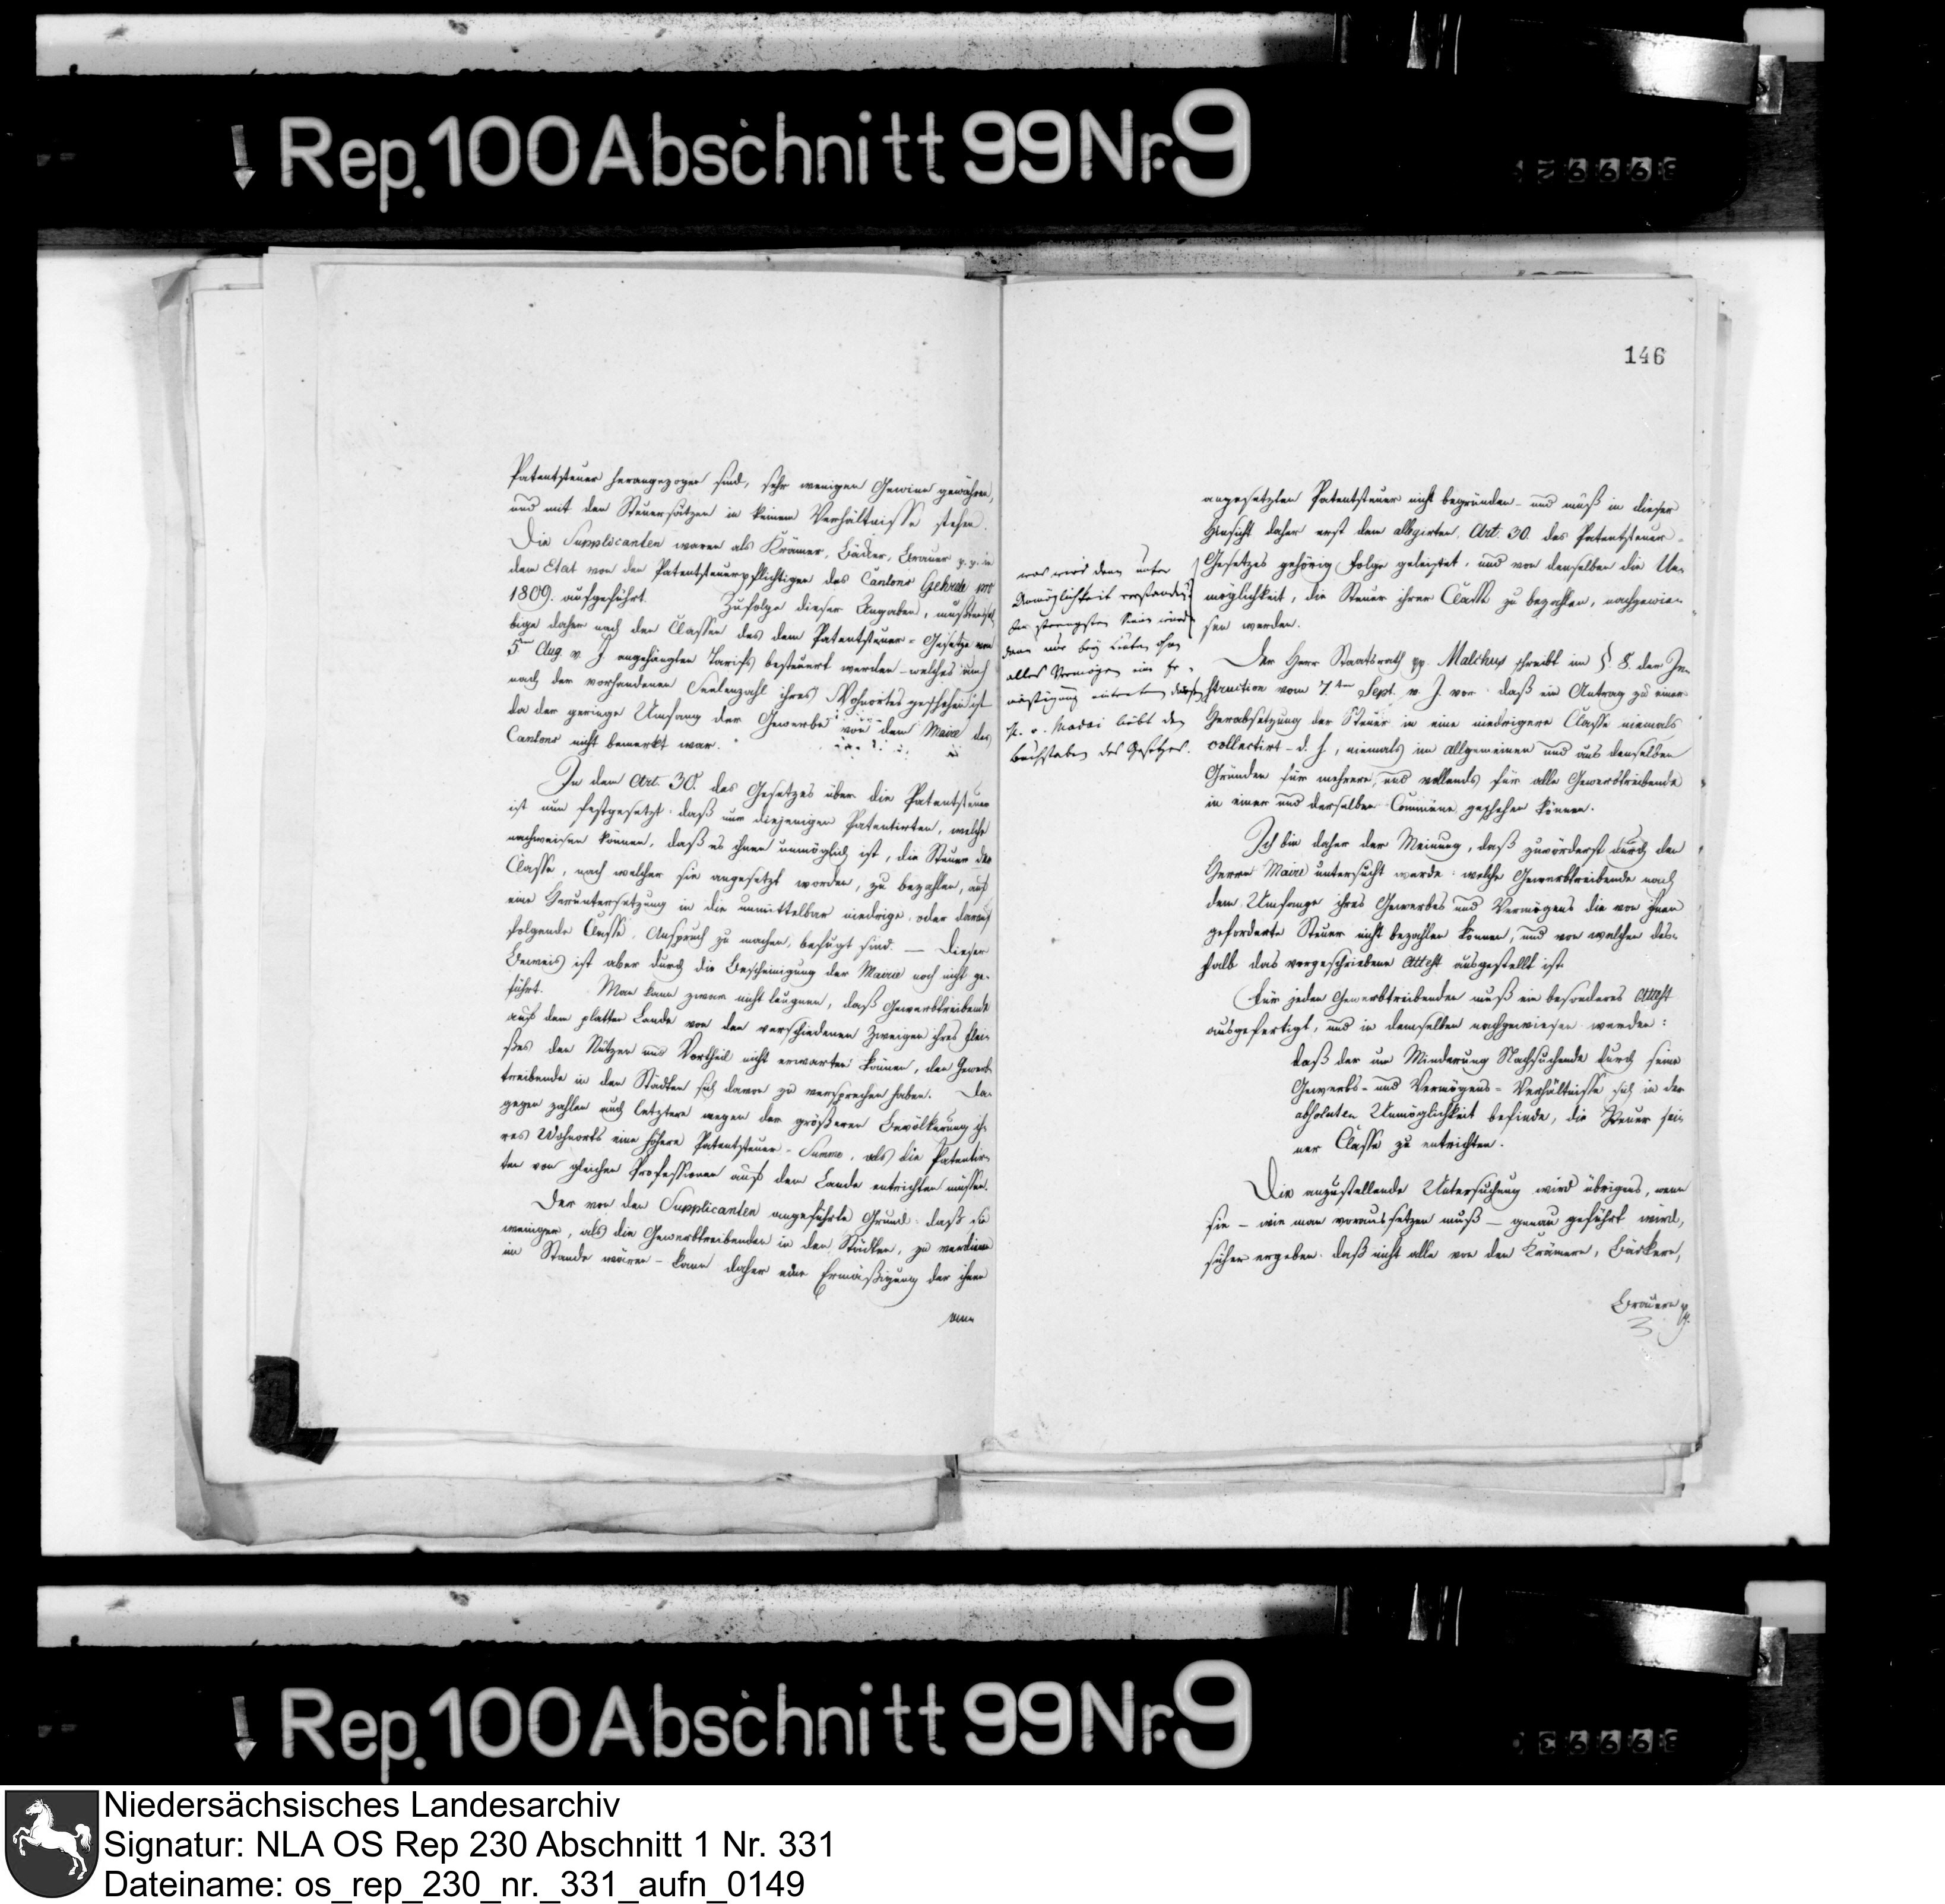 Rep. 100 Abschnitt 99 Nr. 9
146
Patentsteuer herangezogen sind, sehr wenigen Gewinn gewähren,
und mit den Steuersätzen in keinem Verhältnisse stehen.
Die Supplicanten waren als Krämer, Bäcker, Brauer p. p. in
dem Etat von den Patentsteuerpflichtigen des Cantons Gehrde pro
1809. aufgeführt. Zufolge dieser Angaben, mußten
bige daher nach den Classen des dem Patentsteuer-Gesetze vom
5ten Aug. v. J. angehängten Tarifs besteuert werden – welches auch
nach der vorhandenen Seelenzahl ihres Wohnortes geschehen ist
da der geringe Umfang der Gewerbe von dem Maire des
Cantons nicht bemerkt war.
In dem Art. 30. des Gesetzes über die Patentsteuer
ist nun festgesetzt: daß nur diejenigen Patentirten, welche
nachweisen können, daß es ihnen unmöglich ist, die Steuer der
Classe, nach welcher sie angesetzt worden, zu bezahlen, auf
eine Heruntersetzung in die unmittelbar niedrige oder darauf
folgende Classe, Anspruch zu machen, befugt sind. — Dieser
Beweis ist aber durch die Bescheinigung der Mairie noch nicht ge-
führt. Man kann zwar nicht leugnen, daß Gewerbtreibende
auf dem platten Lande von den verschiedenen Zweigen ihres Flei-
ßes den Nutzen und Vortheil nicht erwarten können, den Gewerb-
treibende in den Städten sich davon zu versprechen haben. Da-
gegen zahlen auch letztere wegen der größeren Bevölkerung ih-
res Wohnorts eine höhere Patentsteuer-Summe, als die Patentir-
ten von gleichen Professionen auf dem Lande entrichten müssen.
Der von den Supplicanten angeführte Grund: daß sie
weniger, als die Gewerbtreibenden in den Städten, zu verdienen
im Stande wären – kann daher eine Ermäßigung der ihnen
ange
was wird denn unter
Unmöglichkeit verstanden?
Im strengsten Sinn wird
denn nur bey Leuten ohne
alles Vermögen eine Er-
mässigung eintreten dürfen
H. v. Madai liebt den
Buchstaben des Gesetzes.
angesetzten Patentsteuer nicht begründen – und muß in dieser
Hinsicht daher erst dem allegirten Art. 30. des Patentsteuer-
Gesetzes gehörig Folge geleistet, und von denselben die Un-
möglichkeit, die Steuer ihrer Classe zu bezahlen, nachgewie-
sen werden.
Der Herr Staatsrath pp. Malchus schreibt im § 8. der In-
struction vom 7.ten Sept. v. J. vor: daß ein Antrag zu einer
Herabsetzung der Steuer in eine niedrigere Classe niemals
collectirt – d. h., niemals im Allgemeinen und aus denselben
Gründen für mehrere, und vollends für alle Gewerbtreibende
in einer und derselben Commüne geschehen können.
Ich bin daher der Meinung, daß zuvörderst durch den
Herrn Maire untersucht werde: welche Gewerbtreibende nach
dem Umfange ihres Gewerbes und Vermögens die von ihnen
geforderte Steuer nicht bezahlen können, und von welchen des-
halb das vorgeschriebene Attest ausgestellt ist.
Für jeden Gewerbtreibenden muß ein besonderes Attest
ausgefertigt, und in demselben nachgewiesen werden:
daß der um Minderung Nachsuchende durch seine
Gewerbs- und Vermögens-Verhältnisse sich in der
absoluten Unmöglichkeit befinde, die Steuer sei-
ner Classe zu entrichten.
Die anzustellende Untersuchung wird übrigens, wenn
sie – wie man voraussetzen muß – genau geführt wird,
sicher ergeben: daß nicht alle von den Krämern, Bäckern,
Brauern pp.
Rep. 100 Abschnitt 99 Nr. 9
Niedersächsisches Landesarchiv
Signatur: NLA OS Rep 230 Abschnitt 1 Nr. 331
Dateiname: os_rep_230_nr._331_aufn_0149